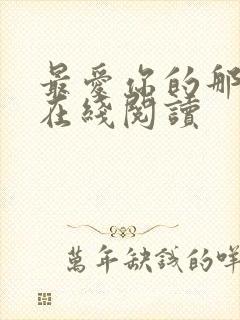 最愛你的那
在綫閱讀
萬年缺錢的咩